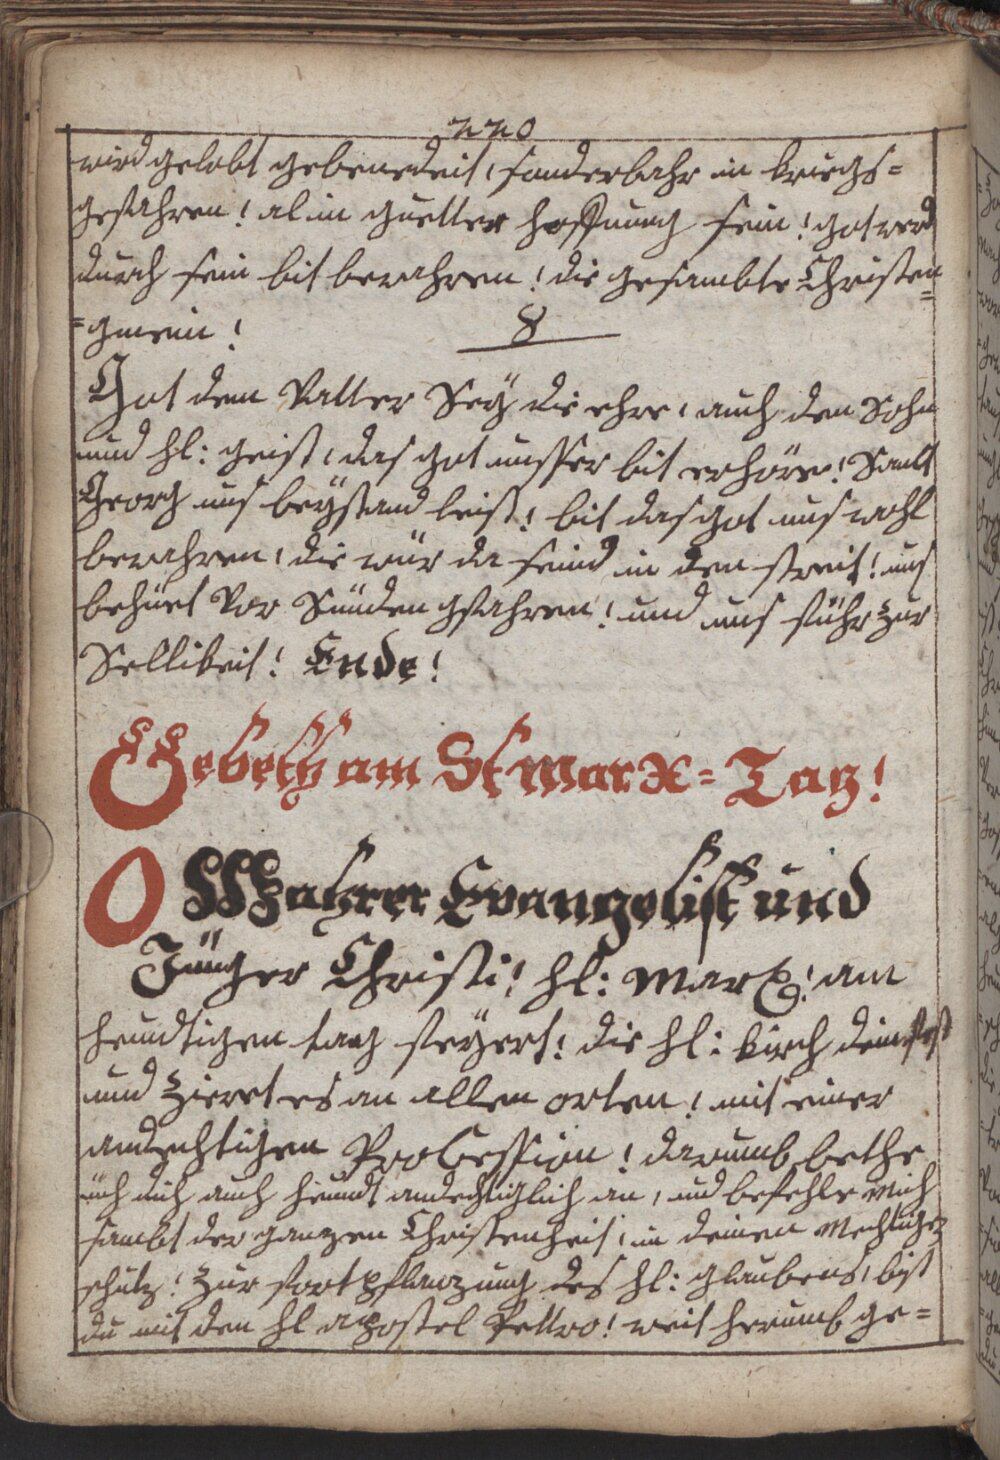 220
wird gelobt gebenedeit, sonderbahr in kriegs=
gefahren! al im guetter hoffnung sein! got werd
durch sein bit bewahren! die gesambte Christen=
=gmein!
8
Got dem Vatter Seÿ die ehre, auch den Sohn
und hl: geist, das got unsser bit erhöre! Sanct
Georg uns beÿstand leist! bit das got uns wohl
bewahren, die wür da seind in den streit! uns
behüet Vor Sünden gfahren! und uns führ zur
Sellikeit! Ende!
Gebeth am St Marx=Tag!
O Wahrer Evangelist und
Jünger Christi! hl: Marx! am
heundtigen tag feÿert! die hl: kirch dein fest
und Zieret es an allen orten! mit einer
andechtigen Procession! darumb bethe
ich dich auch heundt andechtiglich an, und befehle mich
sambt der ganzen Christenheit, in deinen Mechtigen
schutz! Zur fortpflanzung des hl: glaubens, bist
du mit den hl apostel Pettro! weit herumb ge=